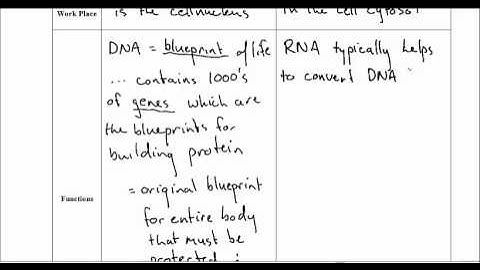 Work Place
is the cell nucleus
in the cell cytosol
Functions
DNA = blueprint of life
... contains 1000's
of genes which are
the blueprints for
building protein
= original blueprint
for entire body
that must be
protected
RNA typically helps
to convert DNA